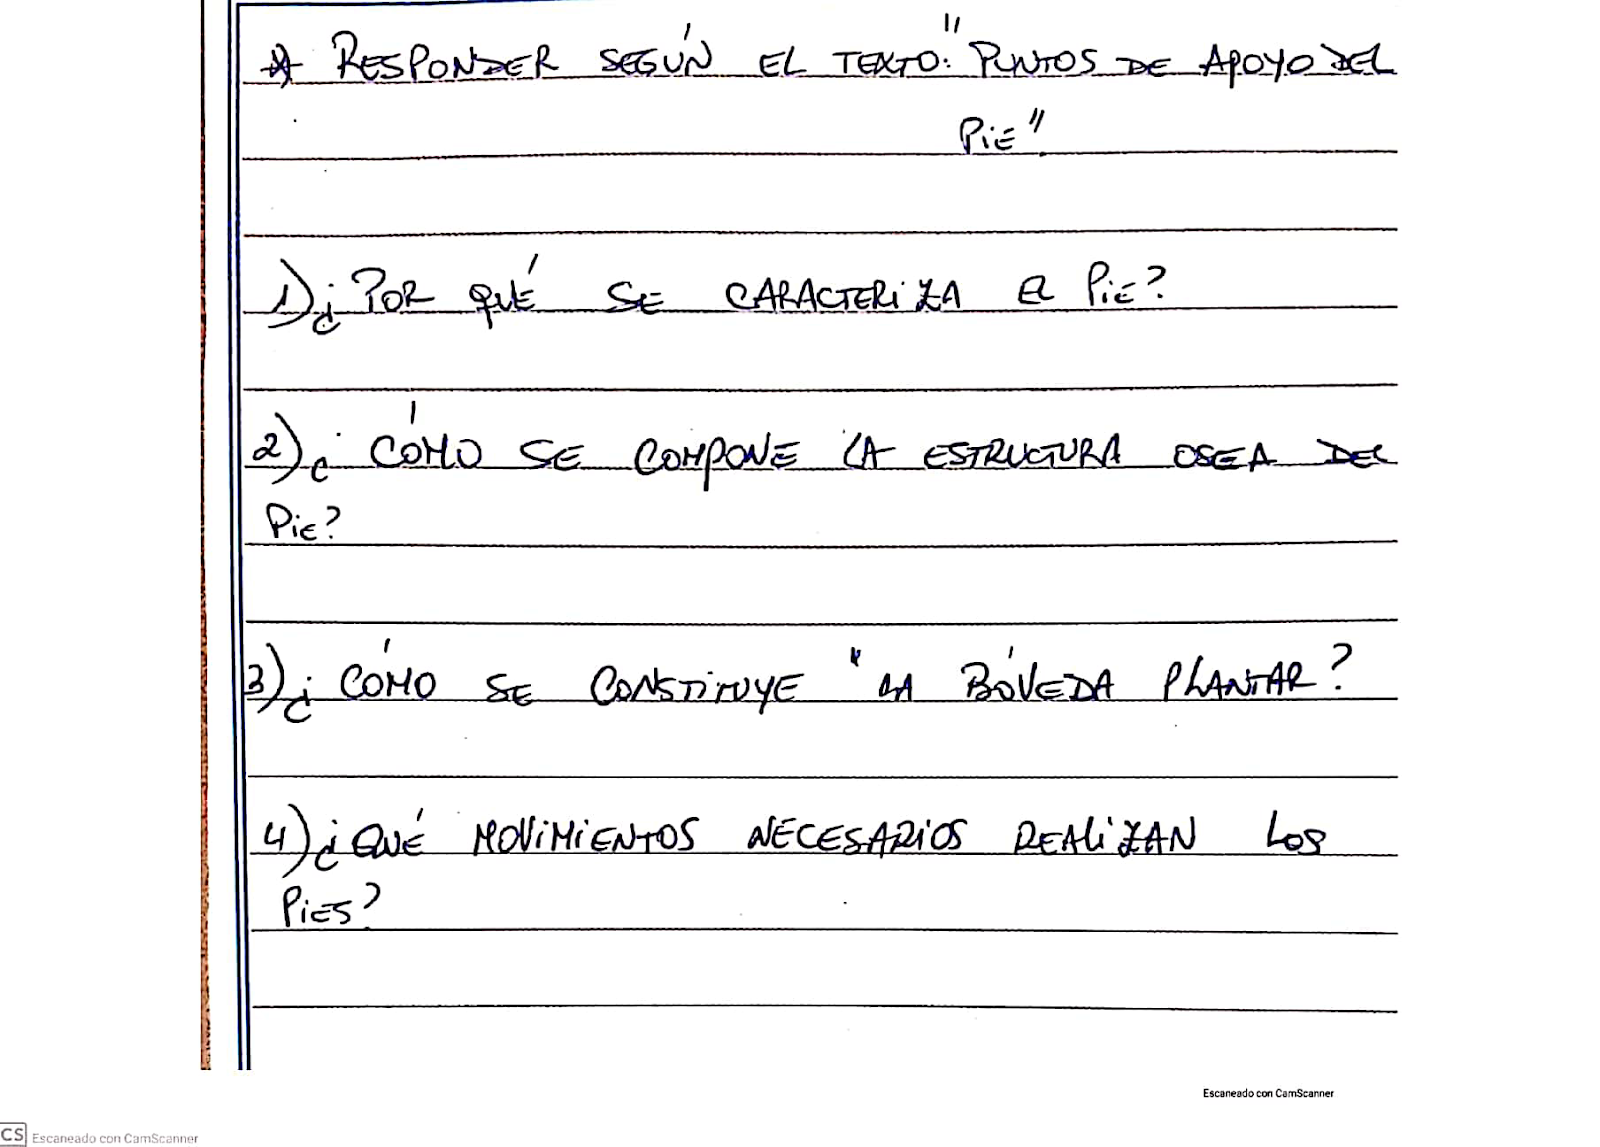 * RESPONDER SEGÚN EL TEXTO: "PUNTOS DE APOYO DEL
PIE"
1) ¿POR QUÉ SE CARACTERIZA EL PIE?
2) ¿CÓMO SE COMPONE LA ESTRUCTURA OSEA DEL
PIE?
3) ¿CÓMO SE CONSTITUYE "LA BÓVEDA PLANTAR?
4) ¿QUÉ MOVIMIENTOS NECESARIOS REALIZAN LOS
PIES?
Escaneado con CamScanner
CS Escaneado con CamScanner